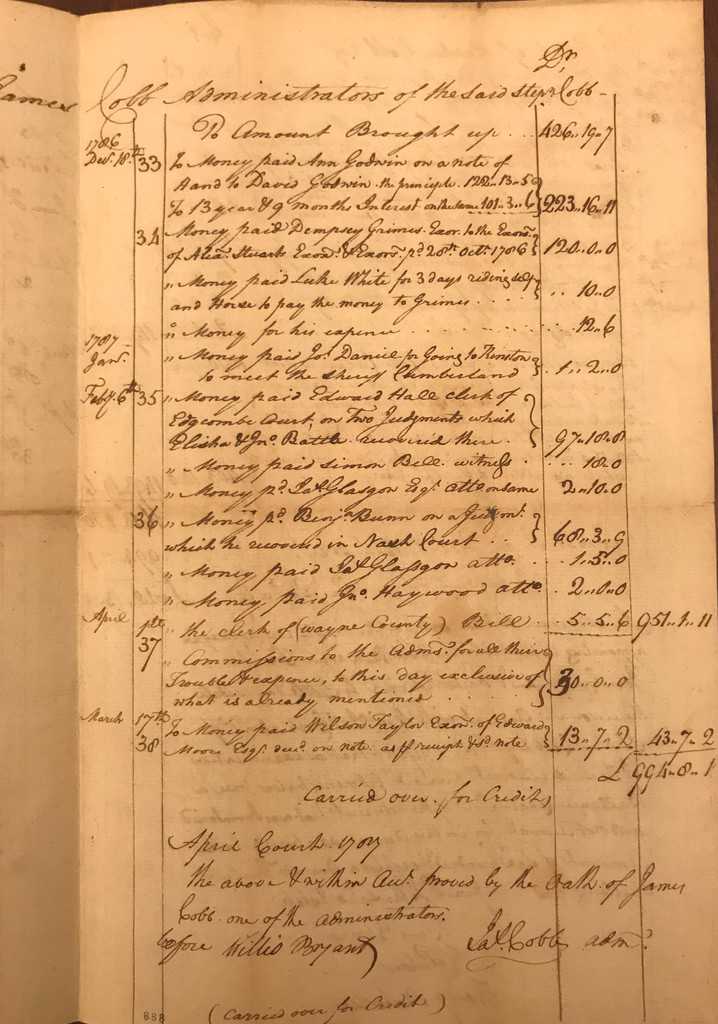 Dr
James Cobb Administrators of the said Stepn Cobb
To Amount Brought up . . . 426..19..7
1786 Decr. 18th 33 To Money paid Ann Godwin on a note of
Hand to David Godwin the principle 122..13..5
To 13 year & 9 months Interest on the same 101..3..6 223..16..11
34 Money paid Dempsey Grimes Exor. to the Exors.
of Alexr. Stuarts Exors. & Exors. pd. 28th. Octr. 1786 120..0..0
" Money paid Luke White for 3 days riding self
and Horse to pay the money to Grimes . . . . " .. 10..0
" Money for his expence . . . . . . . . . 12..6
1787 Janr. " Money paid Jos. Daniel for Going to Kinston
to meet the Sheriff Cumberland 1..2..0
Feby. 6th 35 " Money paid Edward Hall clerk of
Edgcombe Court, on Two Judgments which
Elisha & Jno. Battle recovered there . 97..18..8
" Money paid Simon Bell witness . . . . 18..0
" Money pd. Jas. Glasgon Esqr. atto. on same 2..10..0
36 " Money pd. Benjn. Bunn on a Judgmt.
which he recovered in Nash Court . . 68..3..9
" Money paid Jas. Glasgon atto. . . 1..5..0
" Money paid Jno. Haywood atto. . . 2..0..0
April 1st 37 " the clerk of (wayne County) Bill . . 5..5..6 951..1..11
" Commissions to the Adms. for all their
Trouble & expence, to this day exclusive of
what is already mentioned . . . . . 30..0..0
March 17th 38 To Money paid Wilson Taylor Exor. of Edward
Moore Esqr. decd. on note as pr receipt & sd. note 13..7..2 43..7..2
£ 994..8..1
Carried over for Credit,
April Court 1787
The above & within Acct. proved by the Oath of James
Cobb one of the administrators.
before Willis Bryant Jas. Cobb adm.
(Carried over for Credit)
888